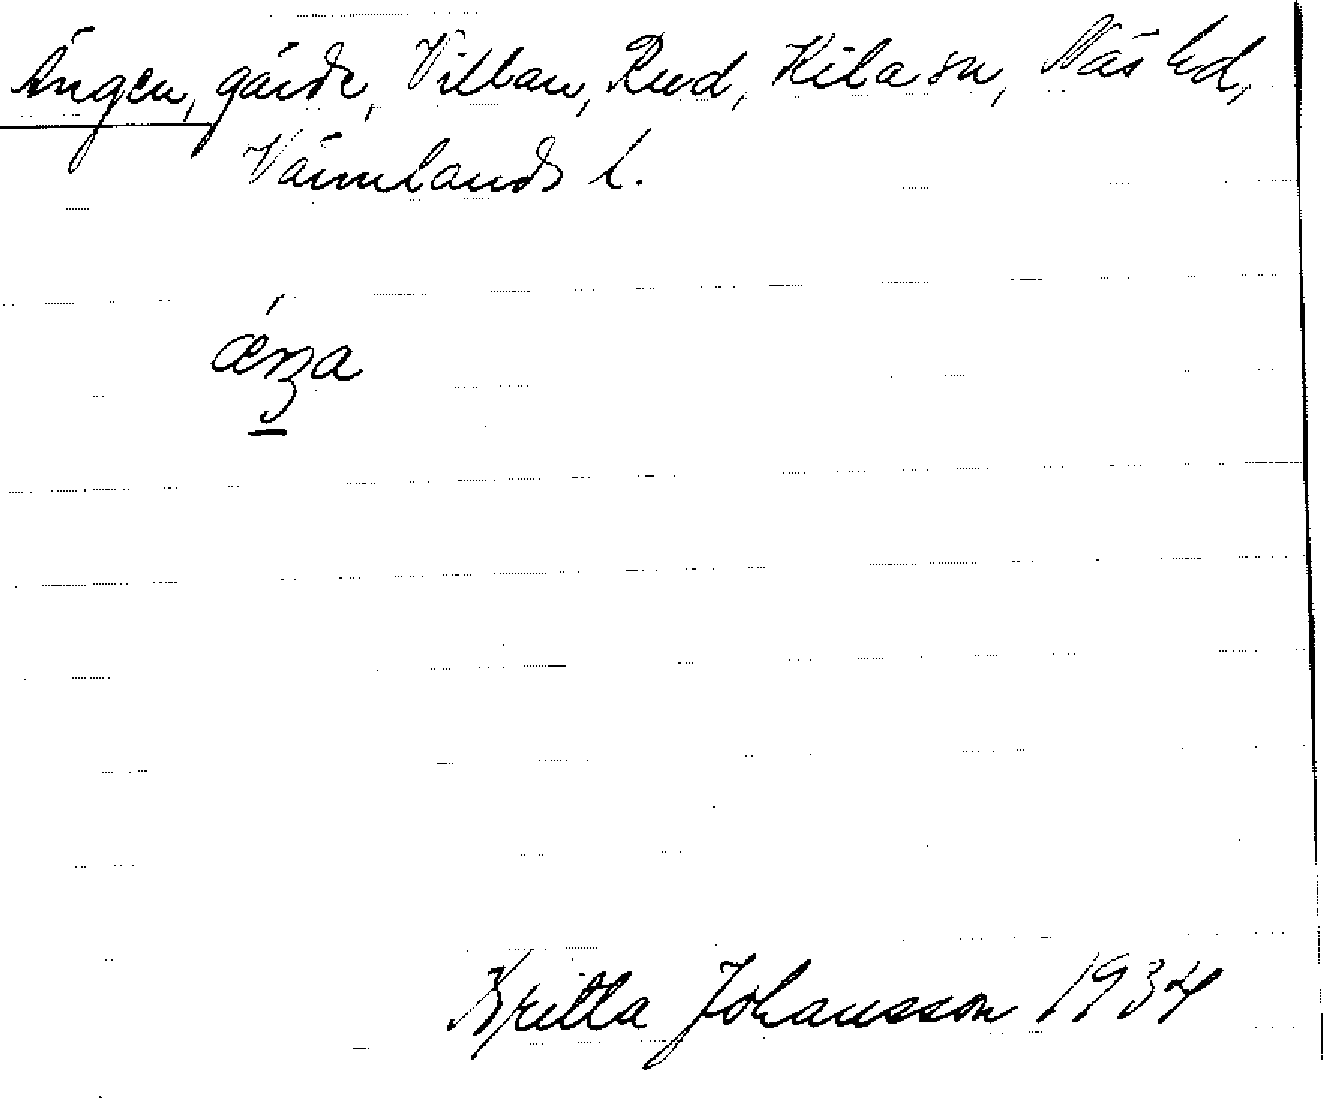 Ängen, gärde, Villan, Rud, Kila sn, Näs hd,
Värmlands l.
ǽŋa
Britta Johansson 1934